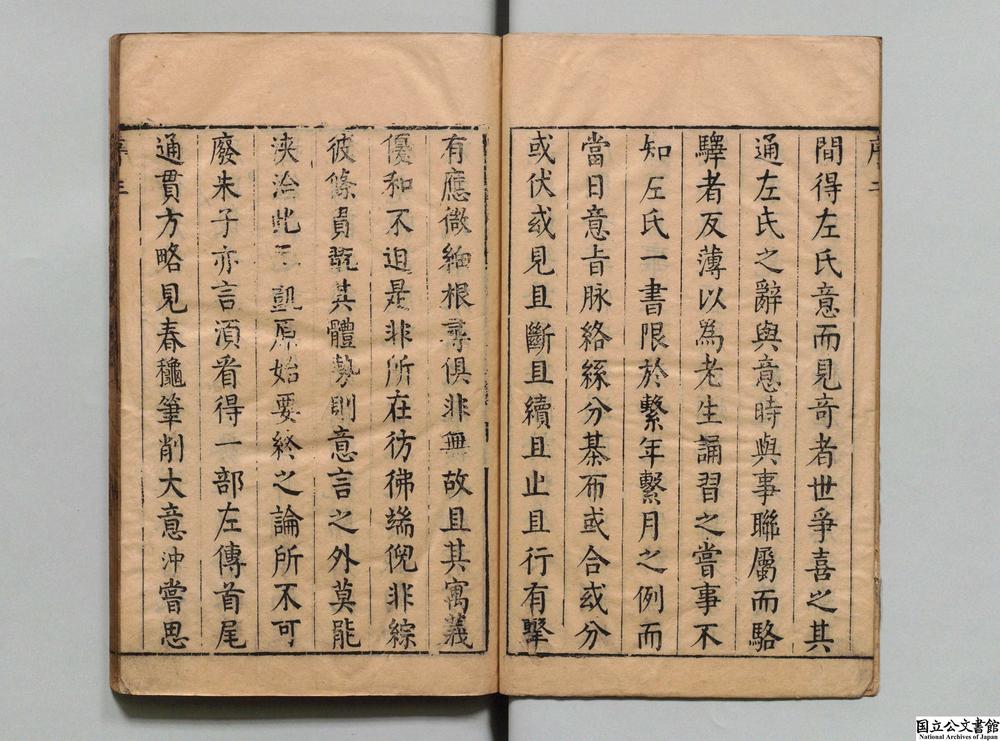 間得左氏意而見奇者世爭喜之其
通左氏之辭與意時與事聯屬而駱
驛者反薄以為老生誦習之嘗事不
知左氏一書限於繫年繫月之例而
當日意旨脉絡絲分棊布或合或分
或伏或見且斷且續且止且行有擥
有應微紬根尋俱非無故且其寓義
優和不迫是非所在彷彿端倪非綜
彼條貫甄其體勢則意言之外莫能
浹洽此元凱原始要終之論所不可
廢朱子亦言須看得一部左傳首尾
通貫方略見春穐筆削大意沖嘗思
序 二
序 三
国立公文書館
National Archives of Japan